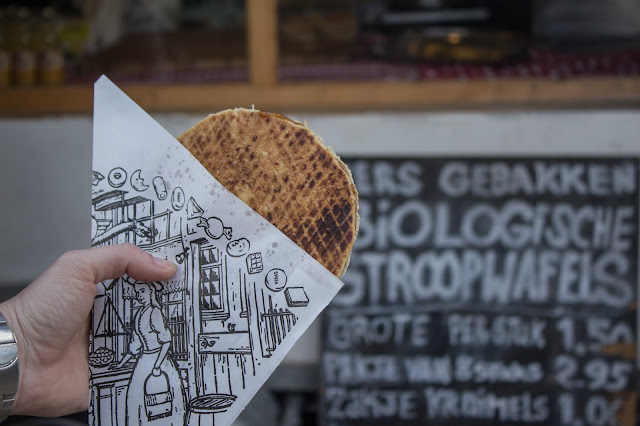 ERS GEBAKKEN
BIOLOGISCHE
STROOPWAFELS
GROTE PER STUK 1.50
PAKJE VAN 2.95
ZAKJE KRUIMELS 1.0